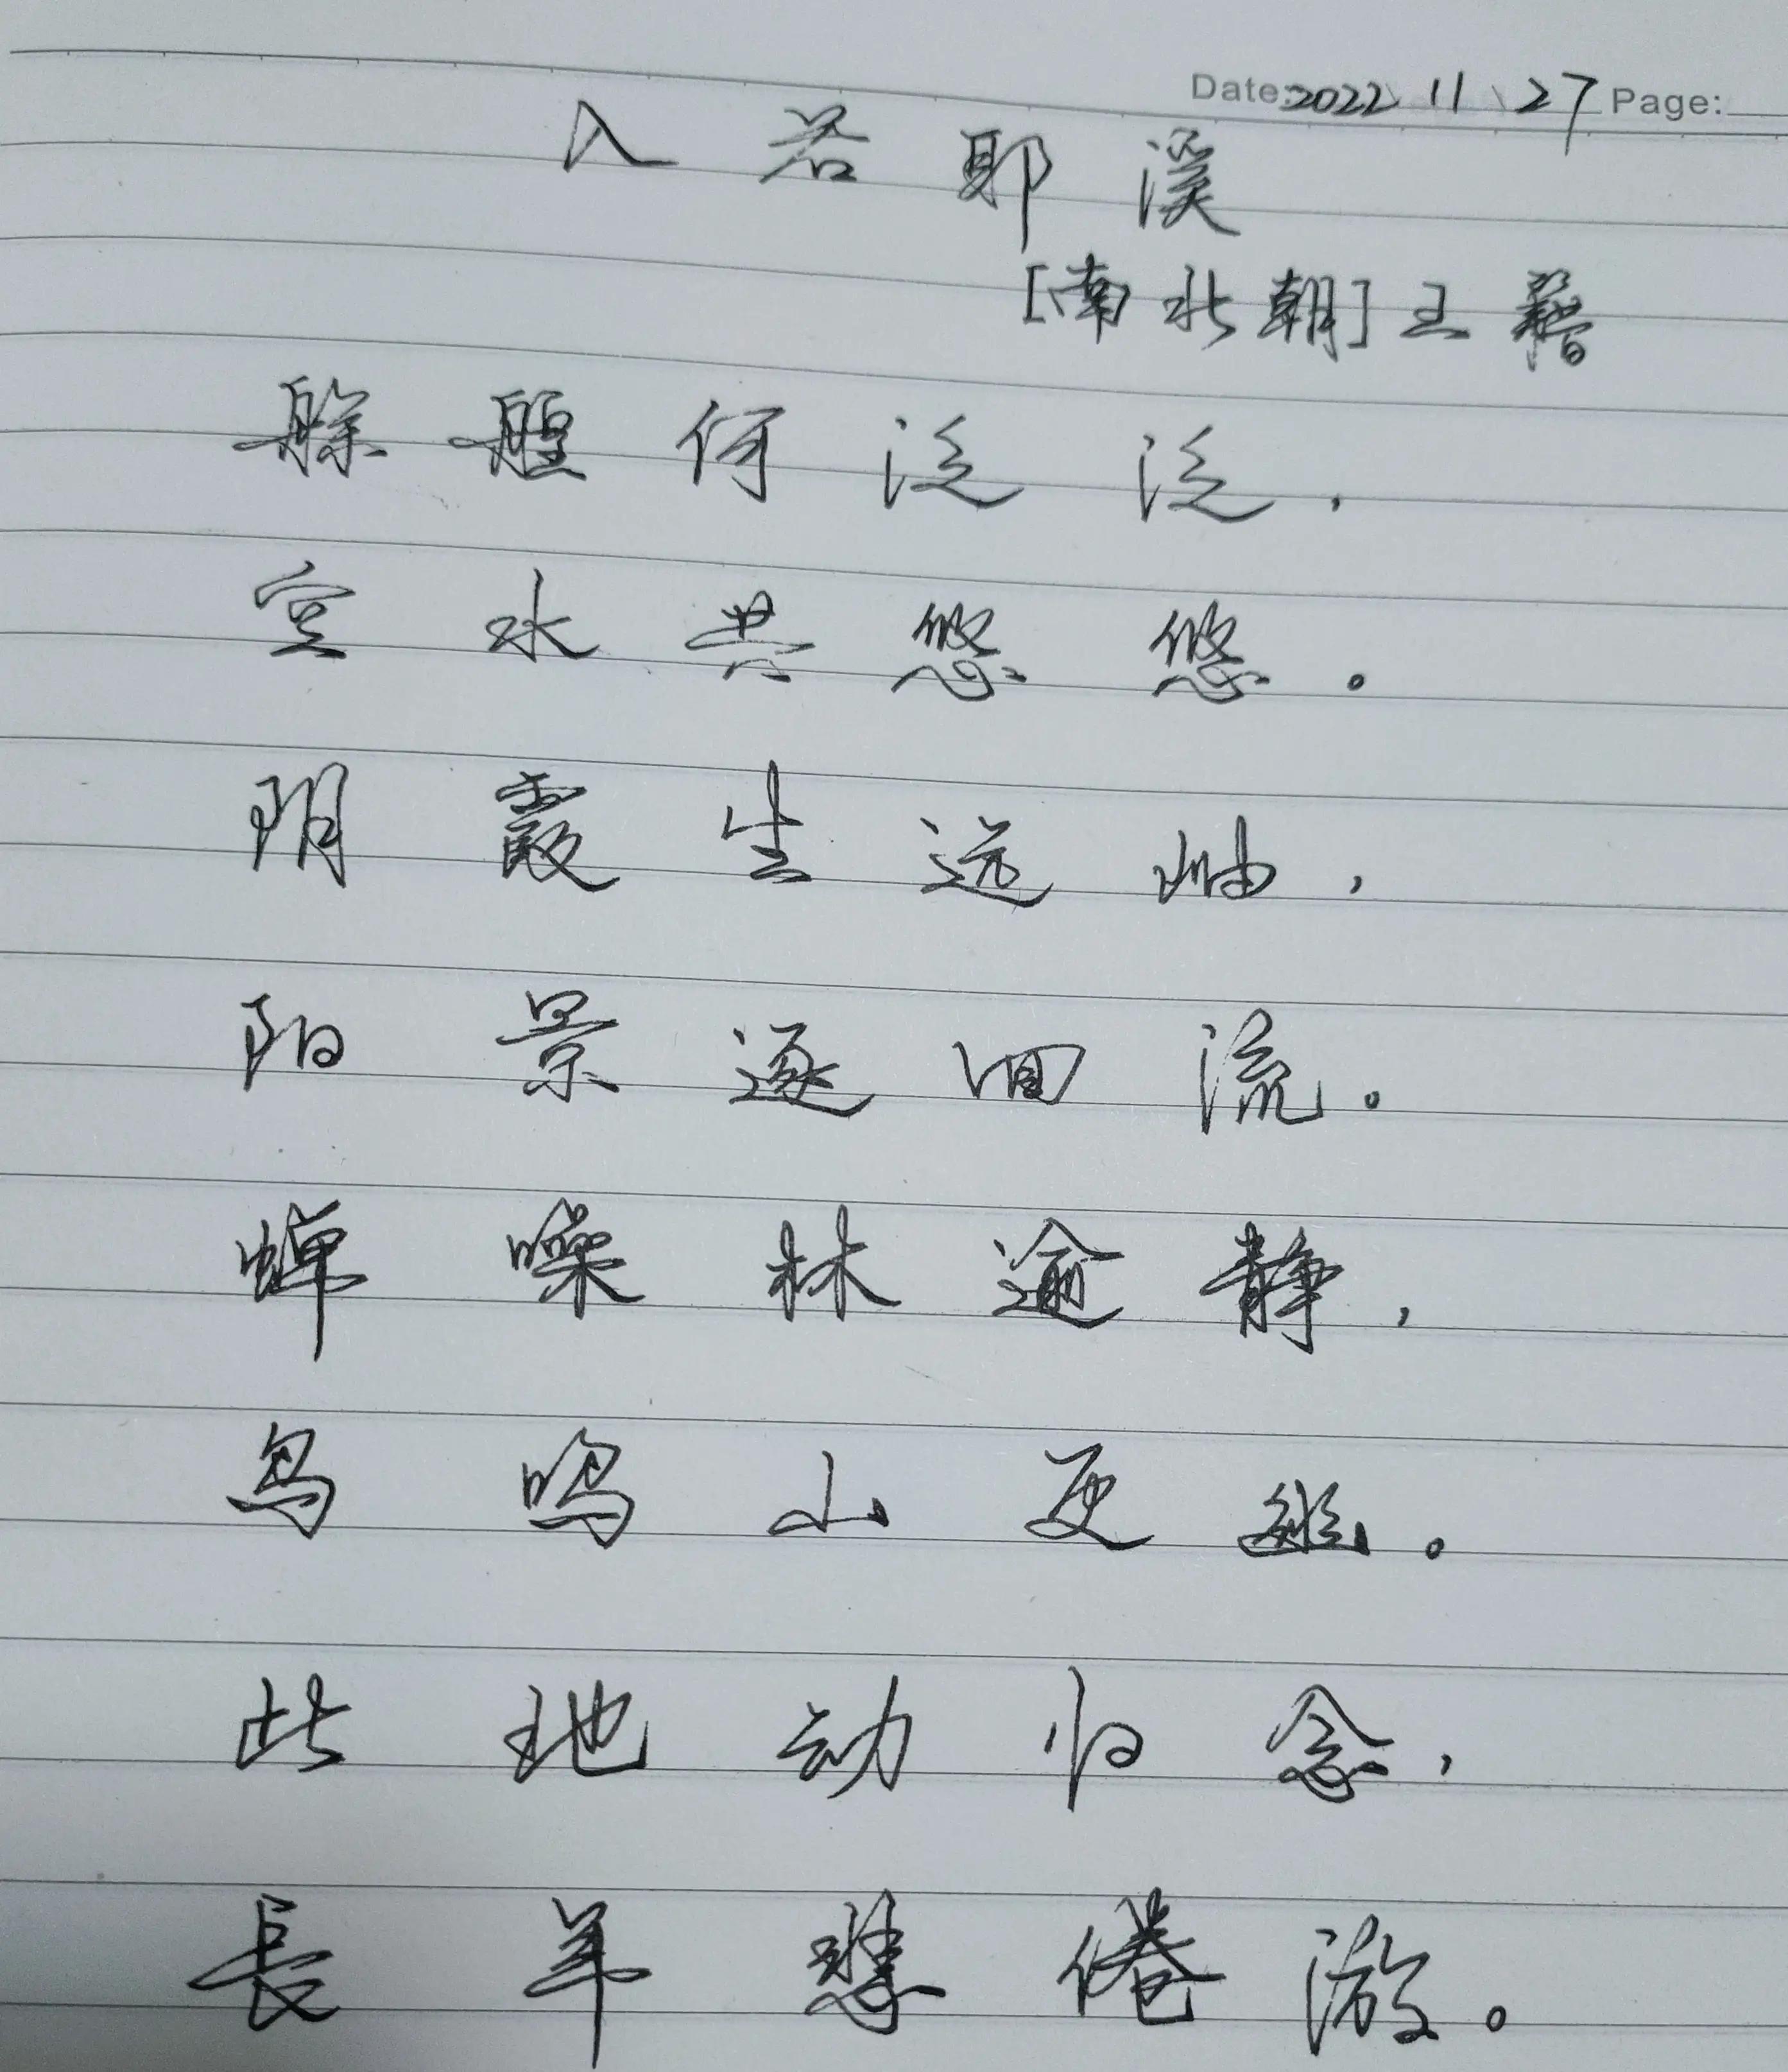 Date: 2022 11 27 Page:
入若耶溪
[南北朝]王籍
艅艎何泛泛，
空水共悠悠。
阴霞生远岫，
阳景逐回流。
蝉噪林逾静，
鸟鸣山更幽。
此地动归念，
長年悲倦游。